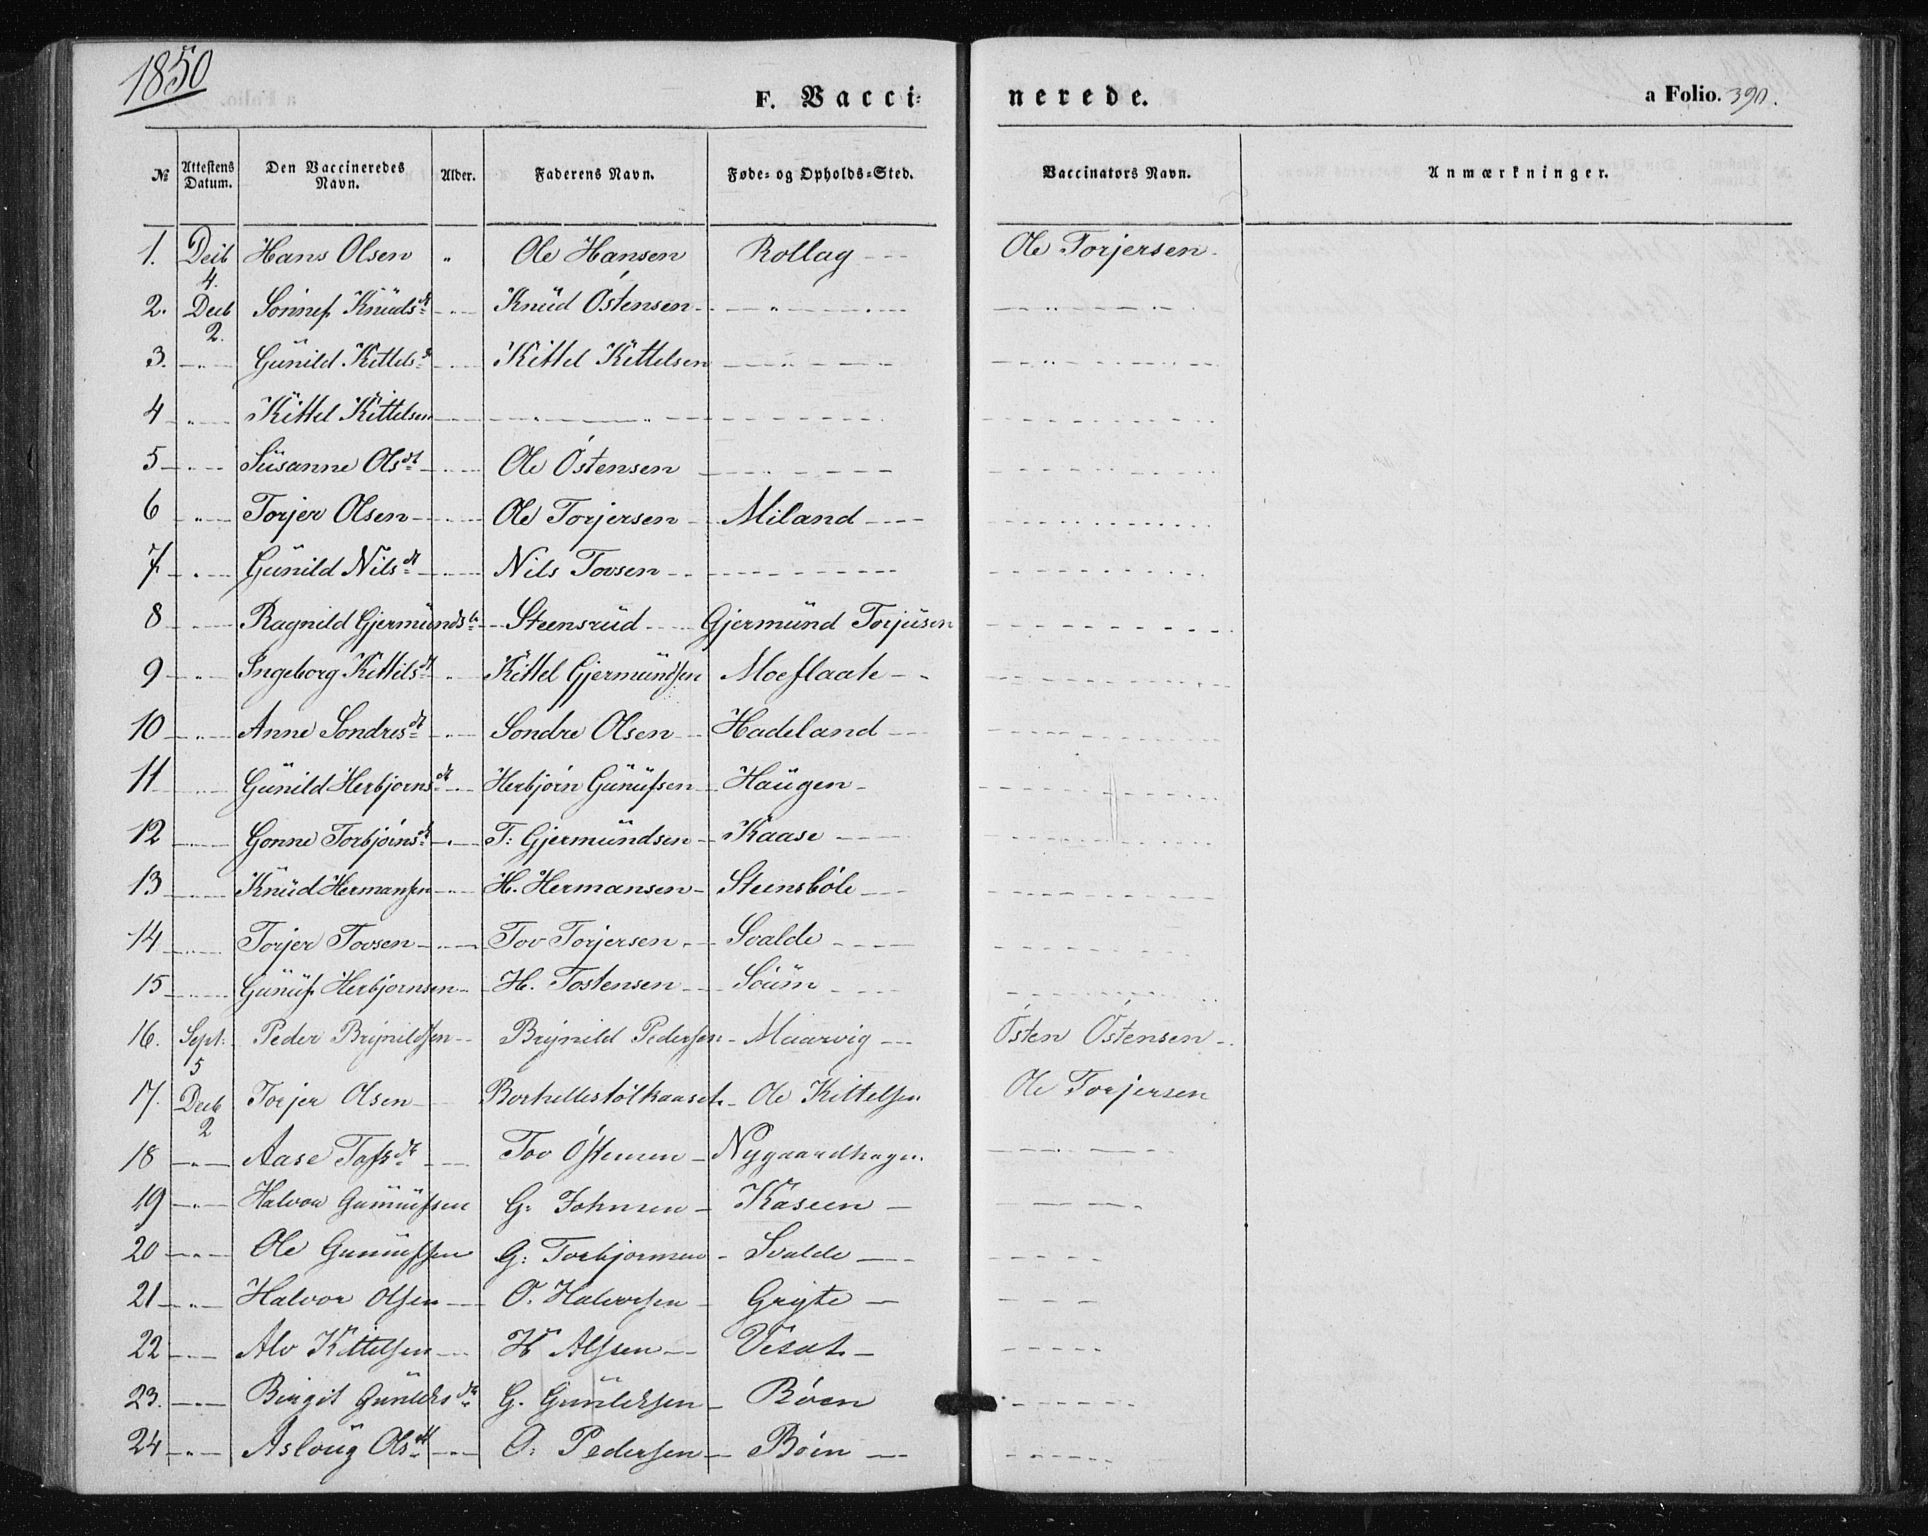 1850
F. Vacci= nerede. a Folio. 390.
№ Attestens Datum. Den Vaccineredes Navn. Alder. Faderens Navn. Føde= og Opholds=Sted. Vaccinators Navn. Anmærkninger.
1. Decb 4. Hans Olsen " Ole Hansen Rollag - - - Ole Torjersen.
2. Decb 2. Sønnef. Knudsdt - " - Knud Østensen - - " - - - - " - -
3. - " - Gunild Kittelsdt - - Kittel Kittelsen - - " - - - - " - -
4 - " - Kittel Kittelsen - - - - " - - - - - - - -
5 - " - Susanne Olsdt - " - Ole Østensen - - - - - - - -
6 - " - Torjer Olsen - " - Ole Torjersen - Miland - - - - - -
7 - " - Gunild Nilsdt - " - Nils Tovsen - - - - - - - -
8 - " - Ragnild Gjermunds - Steensrud - Gjermund Torjusen - - - -
9 - " - Ingeborg Kittilsdt - " - Kittel Gjermundsen Moeflaate - - - - - -
10 - " - Anne Sondresdt - " - Sondre Olsen - Hadeland - - - - - -
11 - " - Gunild Herbjornsdt - " - Herbjørn Gunufsen - Haugen - - - - -
12 - " - Gonne Torbjørnsdt - " - T: Gjermundsen - Kaase - - - - - -
13 - " - Knud Hermansen - " - H. Hermansen - Steensbøle - - - - - -
14 - " - Torjer Tovsen - " - Tov Torjersen - Svalde - - - - - -
15 - " - Gunuf. Herbjornsen - H. Tostensen - Søum - - - - - -
16. Sept: 5 Peder Brynildsen - - Brynild Pedersen - Maarvig - - Østen Østensen - .
17. Decb 2 Torjer Olsen - - Ole Kittelsen Ole Torjersen
18 - " - Aase Tofsdt - - Tov Østensen - Nygaardhagen. - - - -
19 - " - Halvor Gunnufsen G. Johnsen - Kaseen - - - - -
20 - " - Ole Gunnufssen G: Torbjornsen - Svalde - - - - -
21 - " - Halvor Olsen - - O. Halvorsen - Grøte - - - -
22 - " - Alv Kittelsen - - K Alfsen - - Vesat. - - - -
23. - " - Birgit Gunleksdt G. Gunleksen - Bøen - - - -
24 - " - Asloug Olsdt - " - O: Pedersen - Bøen - - - - -